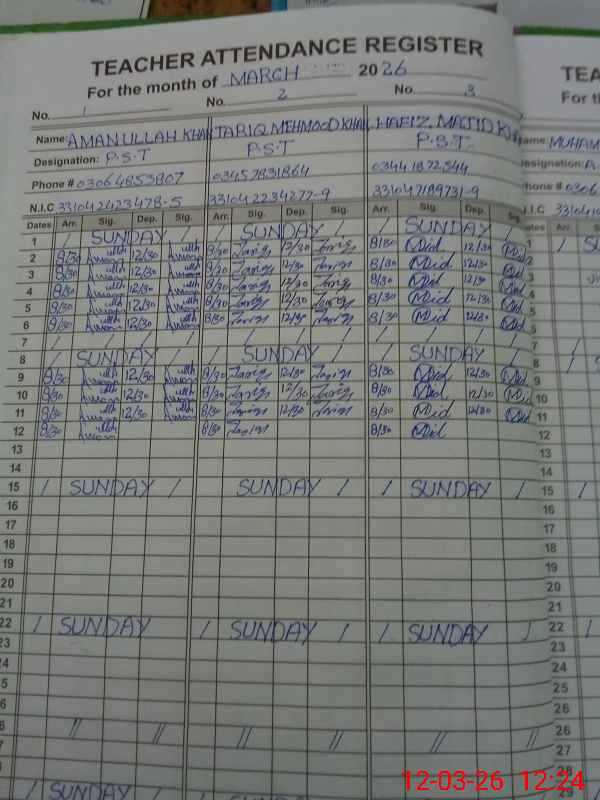 TEACHER ATTENDANCE REGISTER
TEA
For the month of MARCH 2026
For th
No. 1 No. 2 No. 3
Name: AMANULLAH KHAN TARIQ MEHMOOD KHAN HAFIZ MAJID KH
Name: MUHAM
Designation: P.S.T P.S.T P.S.T
Designation: A
Phone # 03064853807 03457831864 03441872544
Phone # 0306
N.I.C 331042423478-5 331042234277-9 331047189731-9
N.I.C 331041
Dates Arr. Sig. Dep. Sig. Arr. Sig. Dep. Sig. Arr. Sig. Dep. Sig. Dates Arr.
1 / SUNDAY / / SUNDAY / / SUNDAY / 1 / SU
2 8/30 12/30 8/30 Tariq 12/30 Tariq 8/30 12/30 2
3 8/30 12/30 8/30 Tariq 12/30 Tariq 8/30 12/30
4 8/30 12/30 8/30 Tariq 12/30 Tariq 8/30 12/30 4
5 8/30 12/30 8/30 Tariq 12/30 Tariq 8/30 12/30 5
6 8/30 12/30 8/30 Tariq 12/30 Tariq 8/30 12/30
7 / / / / / / / / / / / / 7 /
8 / SUNDAY / / SUNDAY / / SUNDAY / 8 /
9 8/30 12/30 8/30 Tariq 12/30 Tariq 8/30 12/30 9
10 8/30 12/30 8/30 Tariq 12/30 Tariq 8/30 12/30 10
11 8/30 12/30 8/30 Tariq 12/30 Tariq 8/30 12/30 11
12 8/30 8/30 Tariq 8/30 12
13 13
14 14
15 / SUNDAY / SUNDAY / / SUNDAY / 15 /
16 16
17 17
18 18
19 19
20 20
21 21
22 / SUNDAY / / SUNDAY / / SUNDAY / 22 /
23 23
24 24
5 25
6 // // // // // // 26 //
7 27
28
SUNDAY SUNDAY 29
12-03-26 12:24